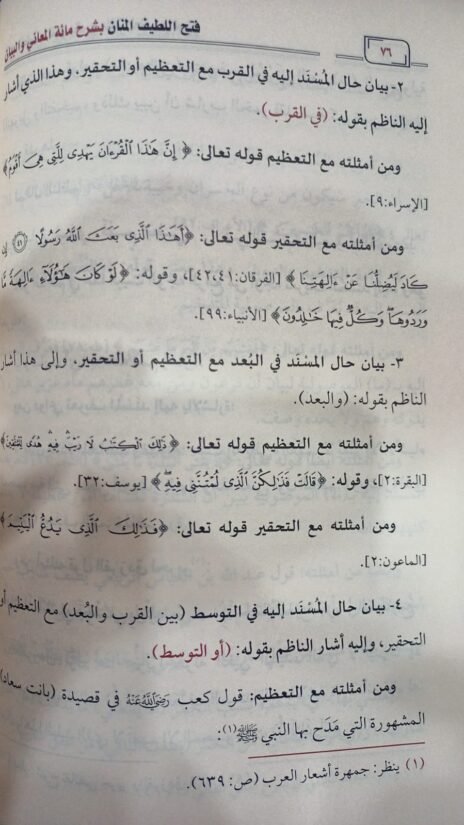 ٧٦
فتح اللطيف المنان بشرح مائة المعاني والبيان
٢- بيان حال المُسْنَد إليه في القرب مع التعظيم أو التحقير، وهذا الذي أشار
إليه الناظم بقوله: (في القرب).
ومن أمثلته مع التعظيم قوله تعالى: ﴿ إِنَّ هَٰذَا ٱلْقُرْءَانَ يَهْدِى لِلَّتِى هِىَ أَقْوَمُ ﴾
[الإسراء:٩].
ومن أمثلته مع التحقير قوله تعالى: ﴿ أَهَٰذَا ٱلَّذِى بَعَثَ ٱللَّهُ رَسُولًا ٤١ إِن
كَادَ لَيُضِلُّنَا عَنْ ءَالِهَتِنَا ﴾ [الفرقان:٤٢،٤١]، وقوله: ﴿ لَوْ كَانَ هَٰٓؤُلَآءِ ءَالِهَةً مَّا
وَرَدُوهَا وَكُلٌّ فِيهَا خَٰلِدُونَ ﴾ [الأنبياء:٩٩].
٣- بيان حال المُسْنَد في البُعد مع التعظيم أو التحقير، وإلى هذا أشار
الناظم بقوله: (والبعد).
ومن أمثلته مع التعظيم قوله تعالى: ﴿ ذَٰلِكَ ٱلْكِتَٰبُ لَا رَيْبَ فِيهِ هُدًى لِّلْمُتَّقِينَ ﴾
[البقرة:٢]، وقوله: ﴿ قَالَتْ فَذَٰلِكُنَّ ٱلَّذِى لُمْتُنَّنِى فِيهِ ﴾ [يوسف:٣٢].
ومن أمثلته مع التحقير قوله تعالى: ﴿ فَذَٰلِكَ ٱلَّذِى يَدُعُّ ٱلْيَتِيمَ ﴾
[الماعون:٢].
٤- بيان حال المُسْنَد إليه في التوسط (بين القرب والبُعد) مع التعظيم أو
التحقير، وإليه أشار الناظم بقوله: (أو التوسط).
ومن أمثلته مع التعظيم: قول كعب رَضِيَ اللَّهُ عَنْهُ في قصيدة (بانت سعاد)
المشهورة التي مَدَح بها النبي ﷺ(١):
(١) ينظر: جمهرة أشعار العرب (ص: ٦٣٩).